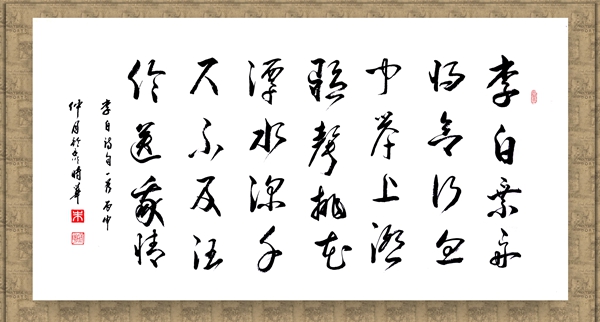 李白乘舟
將欲行忽
聞岸上踏
歌聲桃花
潭水深千
尺不及汪
倫送我情
李白詩句一首丙申
仲月於京時華